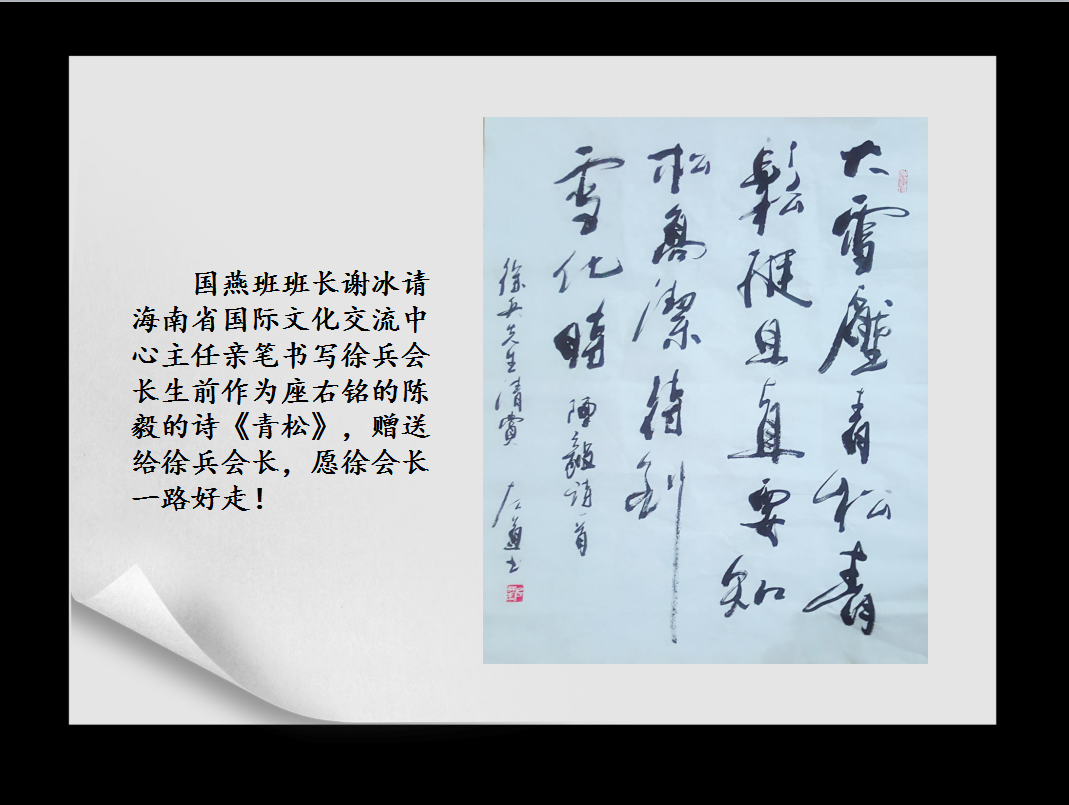 国燕班班长谢冰请
海南省国际文化交流中
心主任亲笔书写徐兵会
长生前作为座右铭的陈
毅的诗《青松》，赠送
给徐兵会长，愿徐会长
一路好走！
大雪壓青松青
鬆挺且直要知
松高潔待到
雪化時 陳毅詩一首
徐兵先生清賞